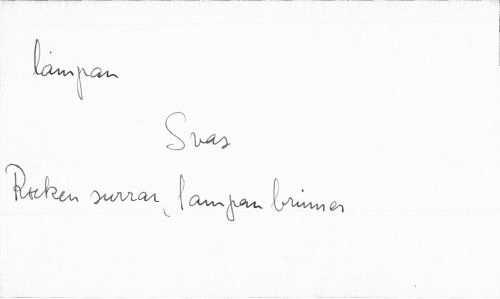 lampan
Svas
Rocken surrar, lampan brinner